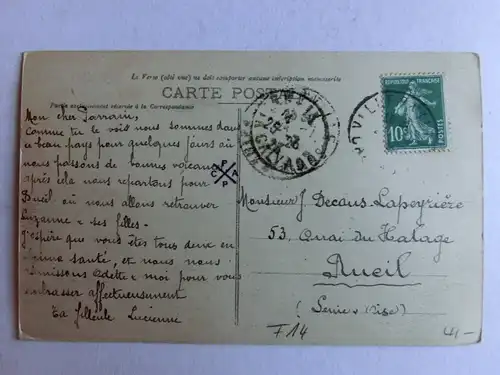 Le Verso (côté vue) ne doit comporter aucune inscription manuscrite
CARTE POSTALE
Partie exclusivement réservée à la Correspondance
Mon cher Parrain,
Comme tu le vois nous sommes dans
ce beau pays pour quelques jours où
nous passons de bonnes vacances
après cela nous repartons pour
Rueil où nous allons retrouver
Suzanne et ses filles.
J'espère que vous êtes tous deux en
bonne santé, et nous nous
réunissons Odette et moi pour vous
embrasser affectueusement
Ta filleule Lucienne
C P A
REPUBLIQUE FRANÇAISE
10c
CALVADOS
Monsieur J Decaus Lapeyrière
53, Quai du Halage
Rueil
(Seine et Oise)
F14
4-